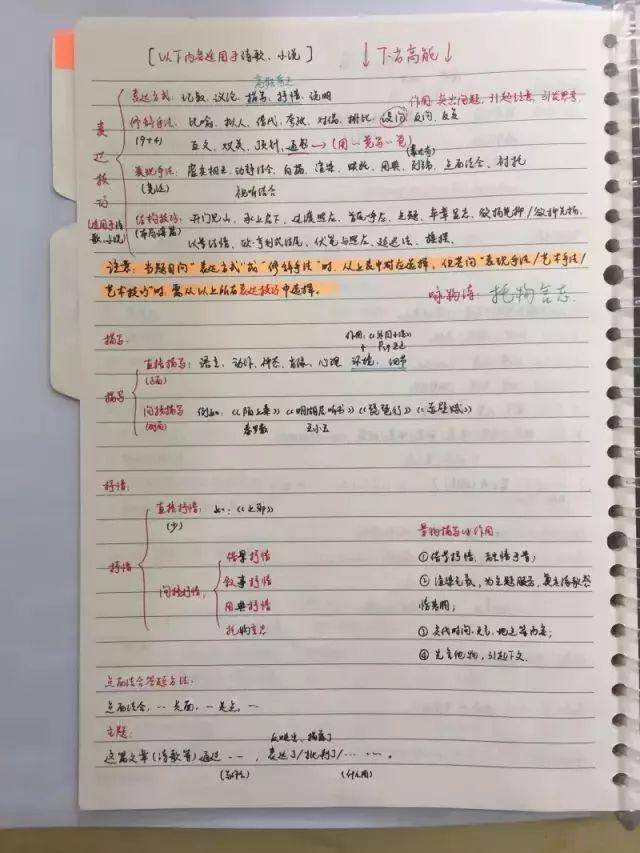 [以下内容适用于诗歌、小说]
↓下方高能↓
表达技巧
(适用于诗歌、小说)
表达方式：记叙、议论、描写、抒情、说明
修辞手法：比喻、拟人、借代、夸张、对偶、排比、设问、反问、反复
作用：突出问题，引起注意，引发思考.
互文、双关、顶针、通感→(用一觉写一觉)
表现手法：虚实相生、动静结合、白描、渲染、烘托、用典、点面结合、衬托
视听结合
结构技巧：开门见山、承上启下、过渡照应、首尾呼应、卒章显志、欲扬先抑/欲抑先扬、
以景结情、伏笔与照应、
注意：当题目问"表达方式"或"修辞手法"时，从上表中对应选择，但若问"表现手法/艺术手法/
艺术技巧"时，需从以上所有表达技巧中选择。
咏物诗：托物言志.
描写：
描写
直接描写：语言、动作、神态、肖像、心理、环境、细节
(正面)
间接描写 例如：《陌上桑》《明湖居听书》《琵琶行》《赤壁赋》
(侧面) 秦罗敷 王小玉
抒情：
抒情
直接抒情：如：《上邪》
(少)
间接抒情：
借景抒情
叙事抒情
用典抒情
托物言志
景物描写的作用：
①借景抒情，融情于景；
②渲染气氛，为主题服务，奠定诗歌感
情基调；
③交代时间、地点等内容；
④先言他物，引起下文.
点面结合答题方法：
点面结合，…是面，…是点，…
主题：
这篇文章(诗歌等)通过……，表达了/批判了/……